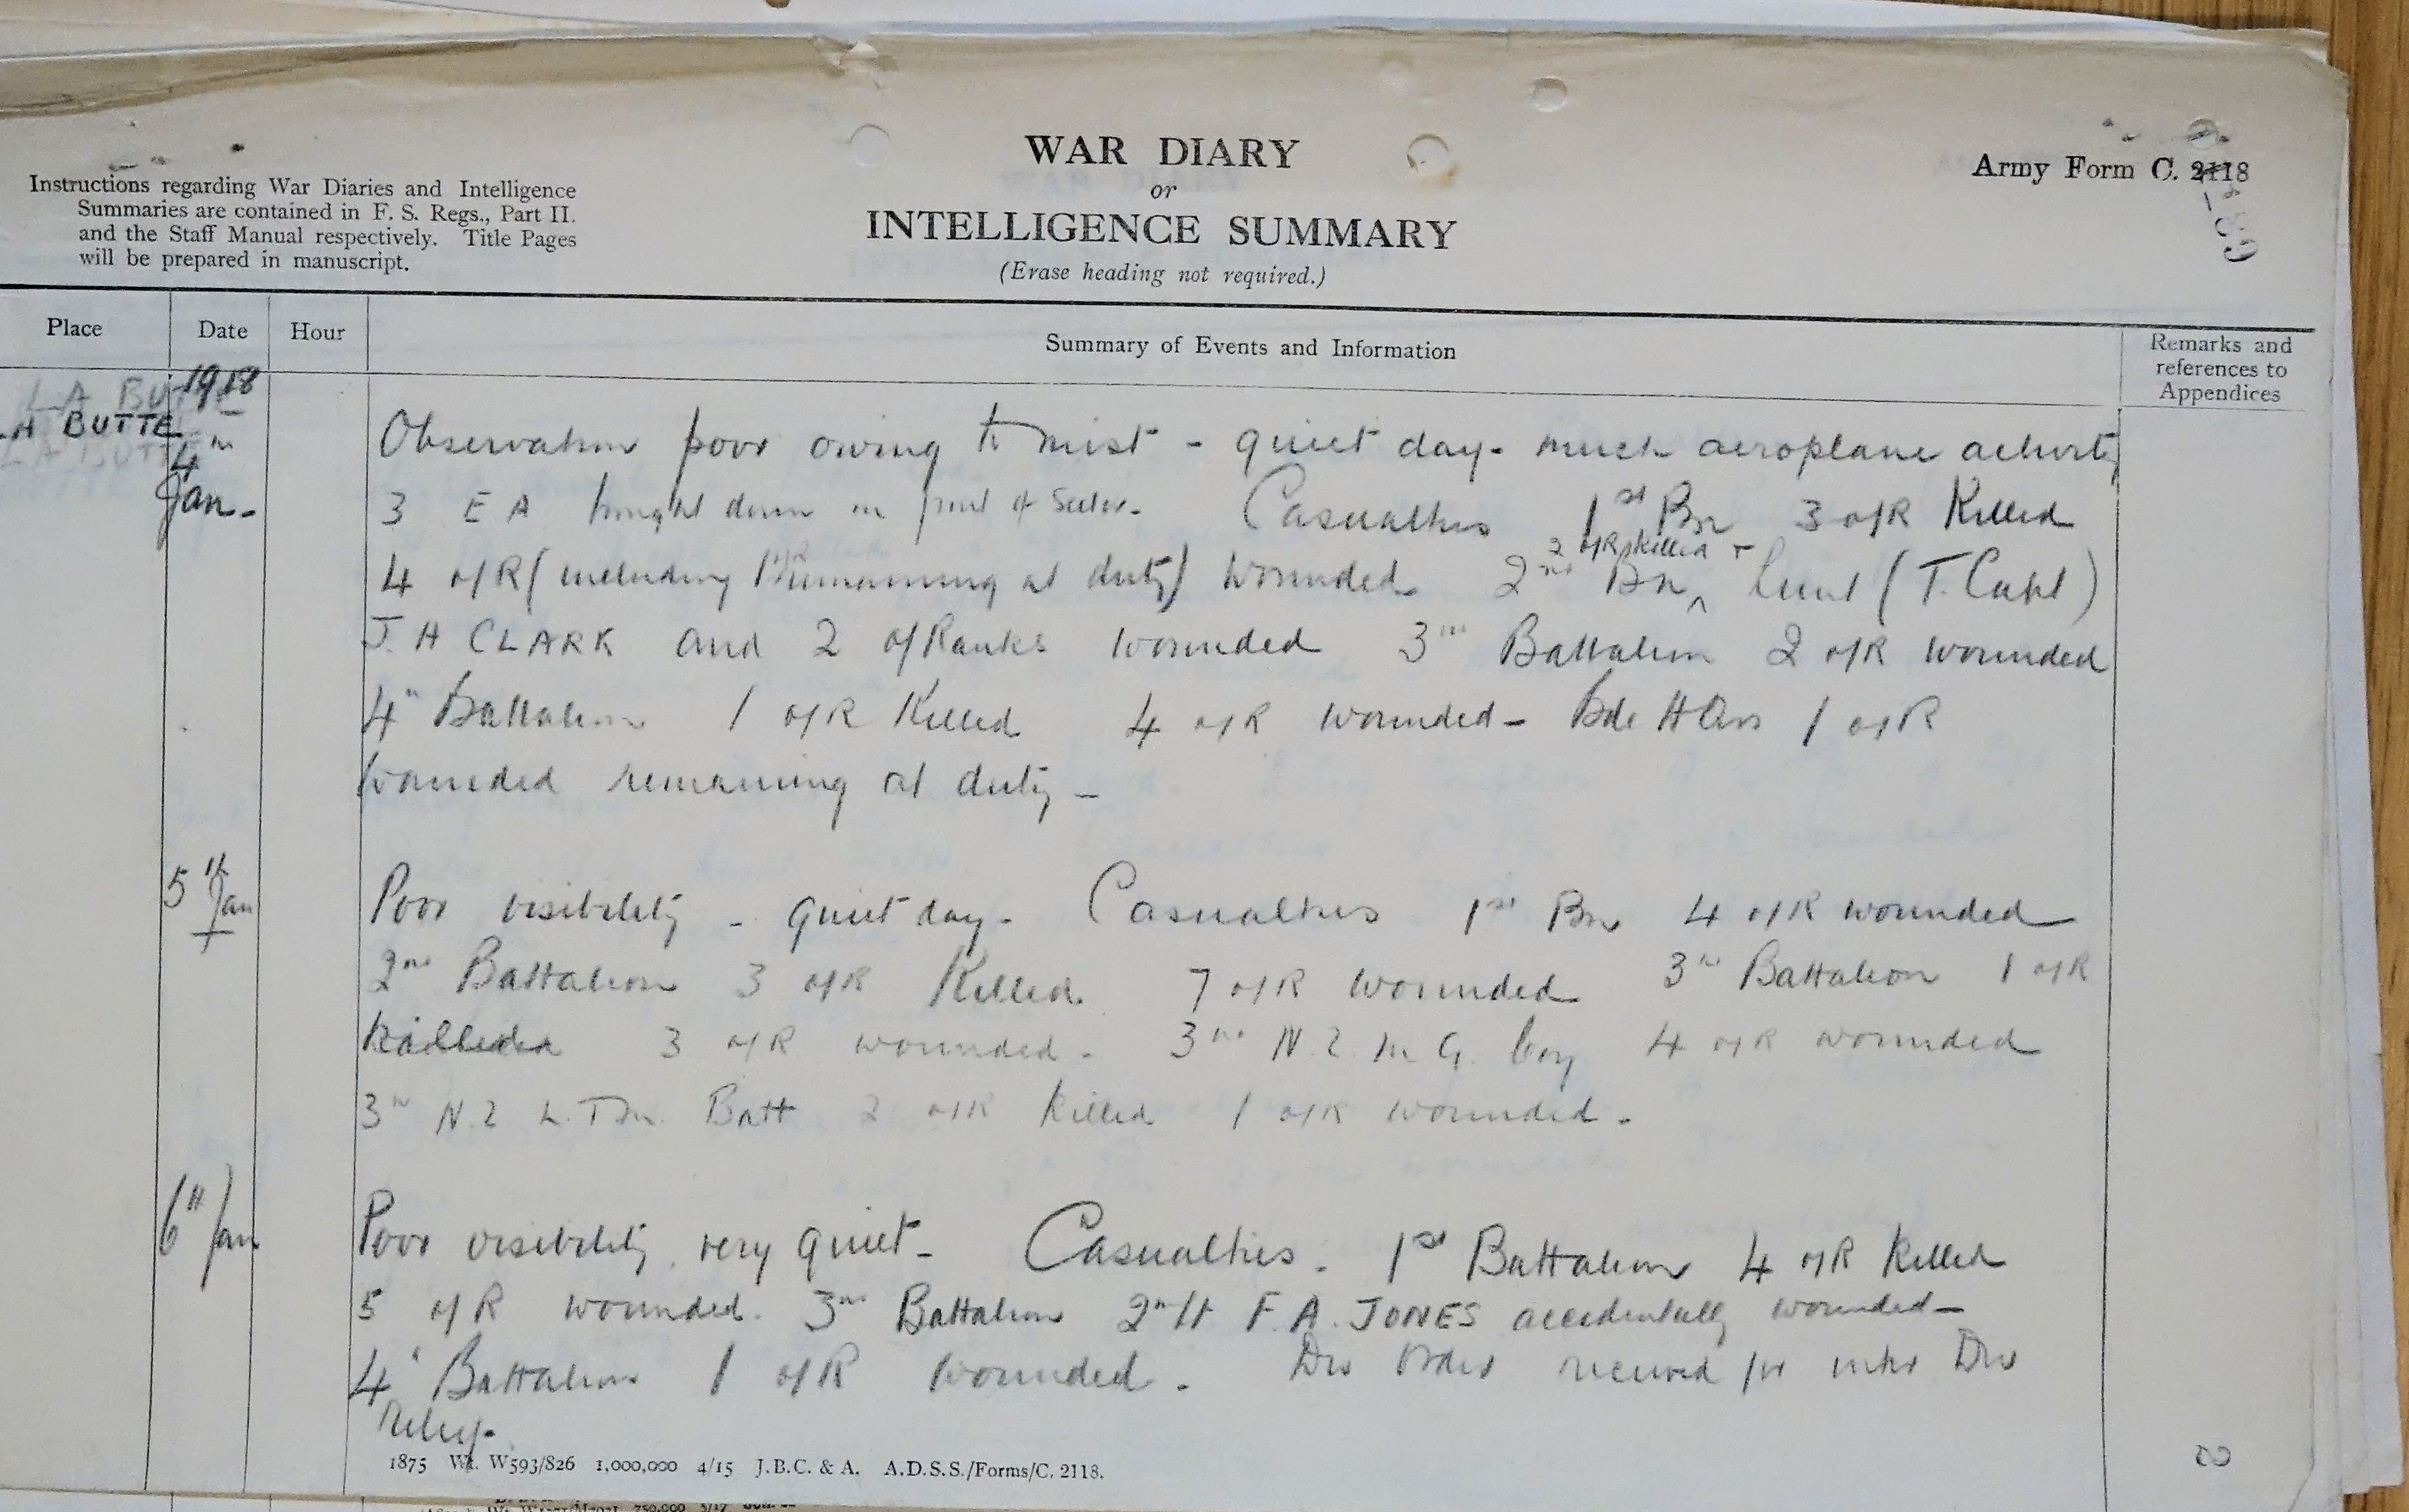 WAR DIARY
or
INTELLIGENCE SUMMARY
(Erase heading not required.)
Army Form C. 2118
Instructions regarding War Diaries and Intelligence
Summaries are contained in F. S. Regs., Part II.
and the Staff Manual respectively. Title Pages
will be prepared in manuscript.
Place Date Hour Summary of Events and Information Remarks and
references to
Appendices
1918
LA BUTTE
4th
Jan.
Observation poor owing to mist - quiet day - much aeroplane activity
3 E A brought down in front of Sector. Casualties 1st Bn 3 o/R Killed
2 o/R killed +
4 o/R (including 1 remaining at duty) wounded 2nd Bn ^ Lieut (T. Capt)
J. H CLARK and 2 o/Ranks wounded 3rd Battalion 2 o/R wounded
4th Battalion 1 o/R Killed 4 o/R wounded - Bde HQrs 1 o/R
wounded remaining at duty -
5th Jan
Poor visibility - quiet day - Casualties 1st Bn 4 o/R wounded
2nd Battalion 3 o/R Killed. 7 o/R wounded 3rd Battalion 1 o/R
killed 3 o/R wounded - 3rd N.Z. M. G. Coy 4 o/R wounded
3rd N.Z L.T.M. Batt 2 o/R killed 1 o/R wounded -
6th Jan
Poor visibility, very quiet - Casualties. 1st Battalion 4 o/R killed
5 o/R wounded. 3rd Battalion 2nd Lt F. A. JONES accidentally wounded -
4th Battalion 1 o/R wounded. Div Order received for inter Div
relief.
1875 Wt. W593/826 1,000,000 4/15 J.B.C. & A. A.D.S.S./Forms/C. 2118.